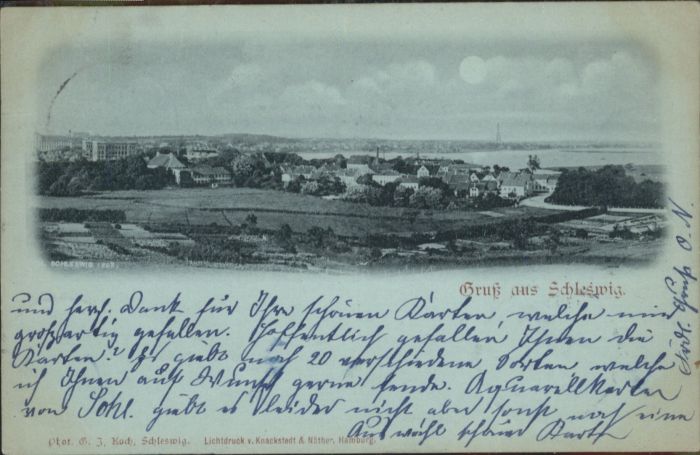 SCHLESWIG 1898
Gruß aus Schleswig.
und herzl. Dank für Ihre schönen Karten, welche mir
großartig gefallen. Hoffentlich gefallen Ihnen die
Karten? Es giebt noch 20 verschiedene Sorten, welche
ich Ihnen auf Wunsch gerne sende. Aquarellkarten
von Schl. giebt es leider nicht aber sonst noch eine
Auswahl schöner Karten
Gruß O. N.
Phot. G. J. Koch, Schleswig. Lichtdruck v. Knackstedt & Näther, Hamburg.